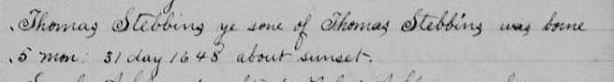 Thomas Stebbing ye sone of Thomas Stebbing was borne
5 mon: 31 day 1648 about sunset.